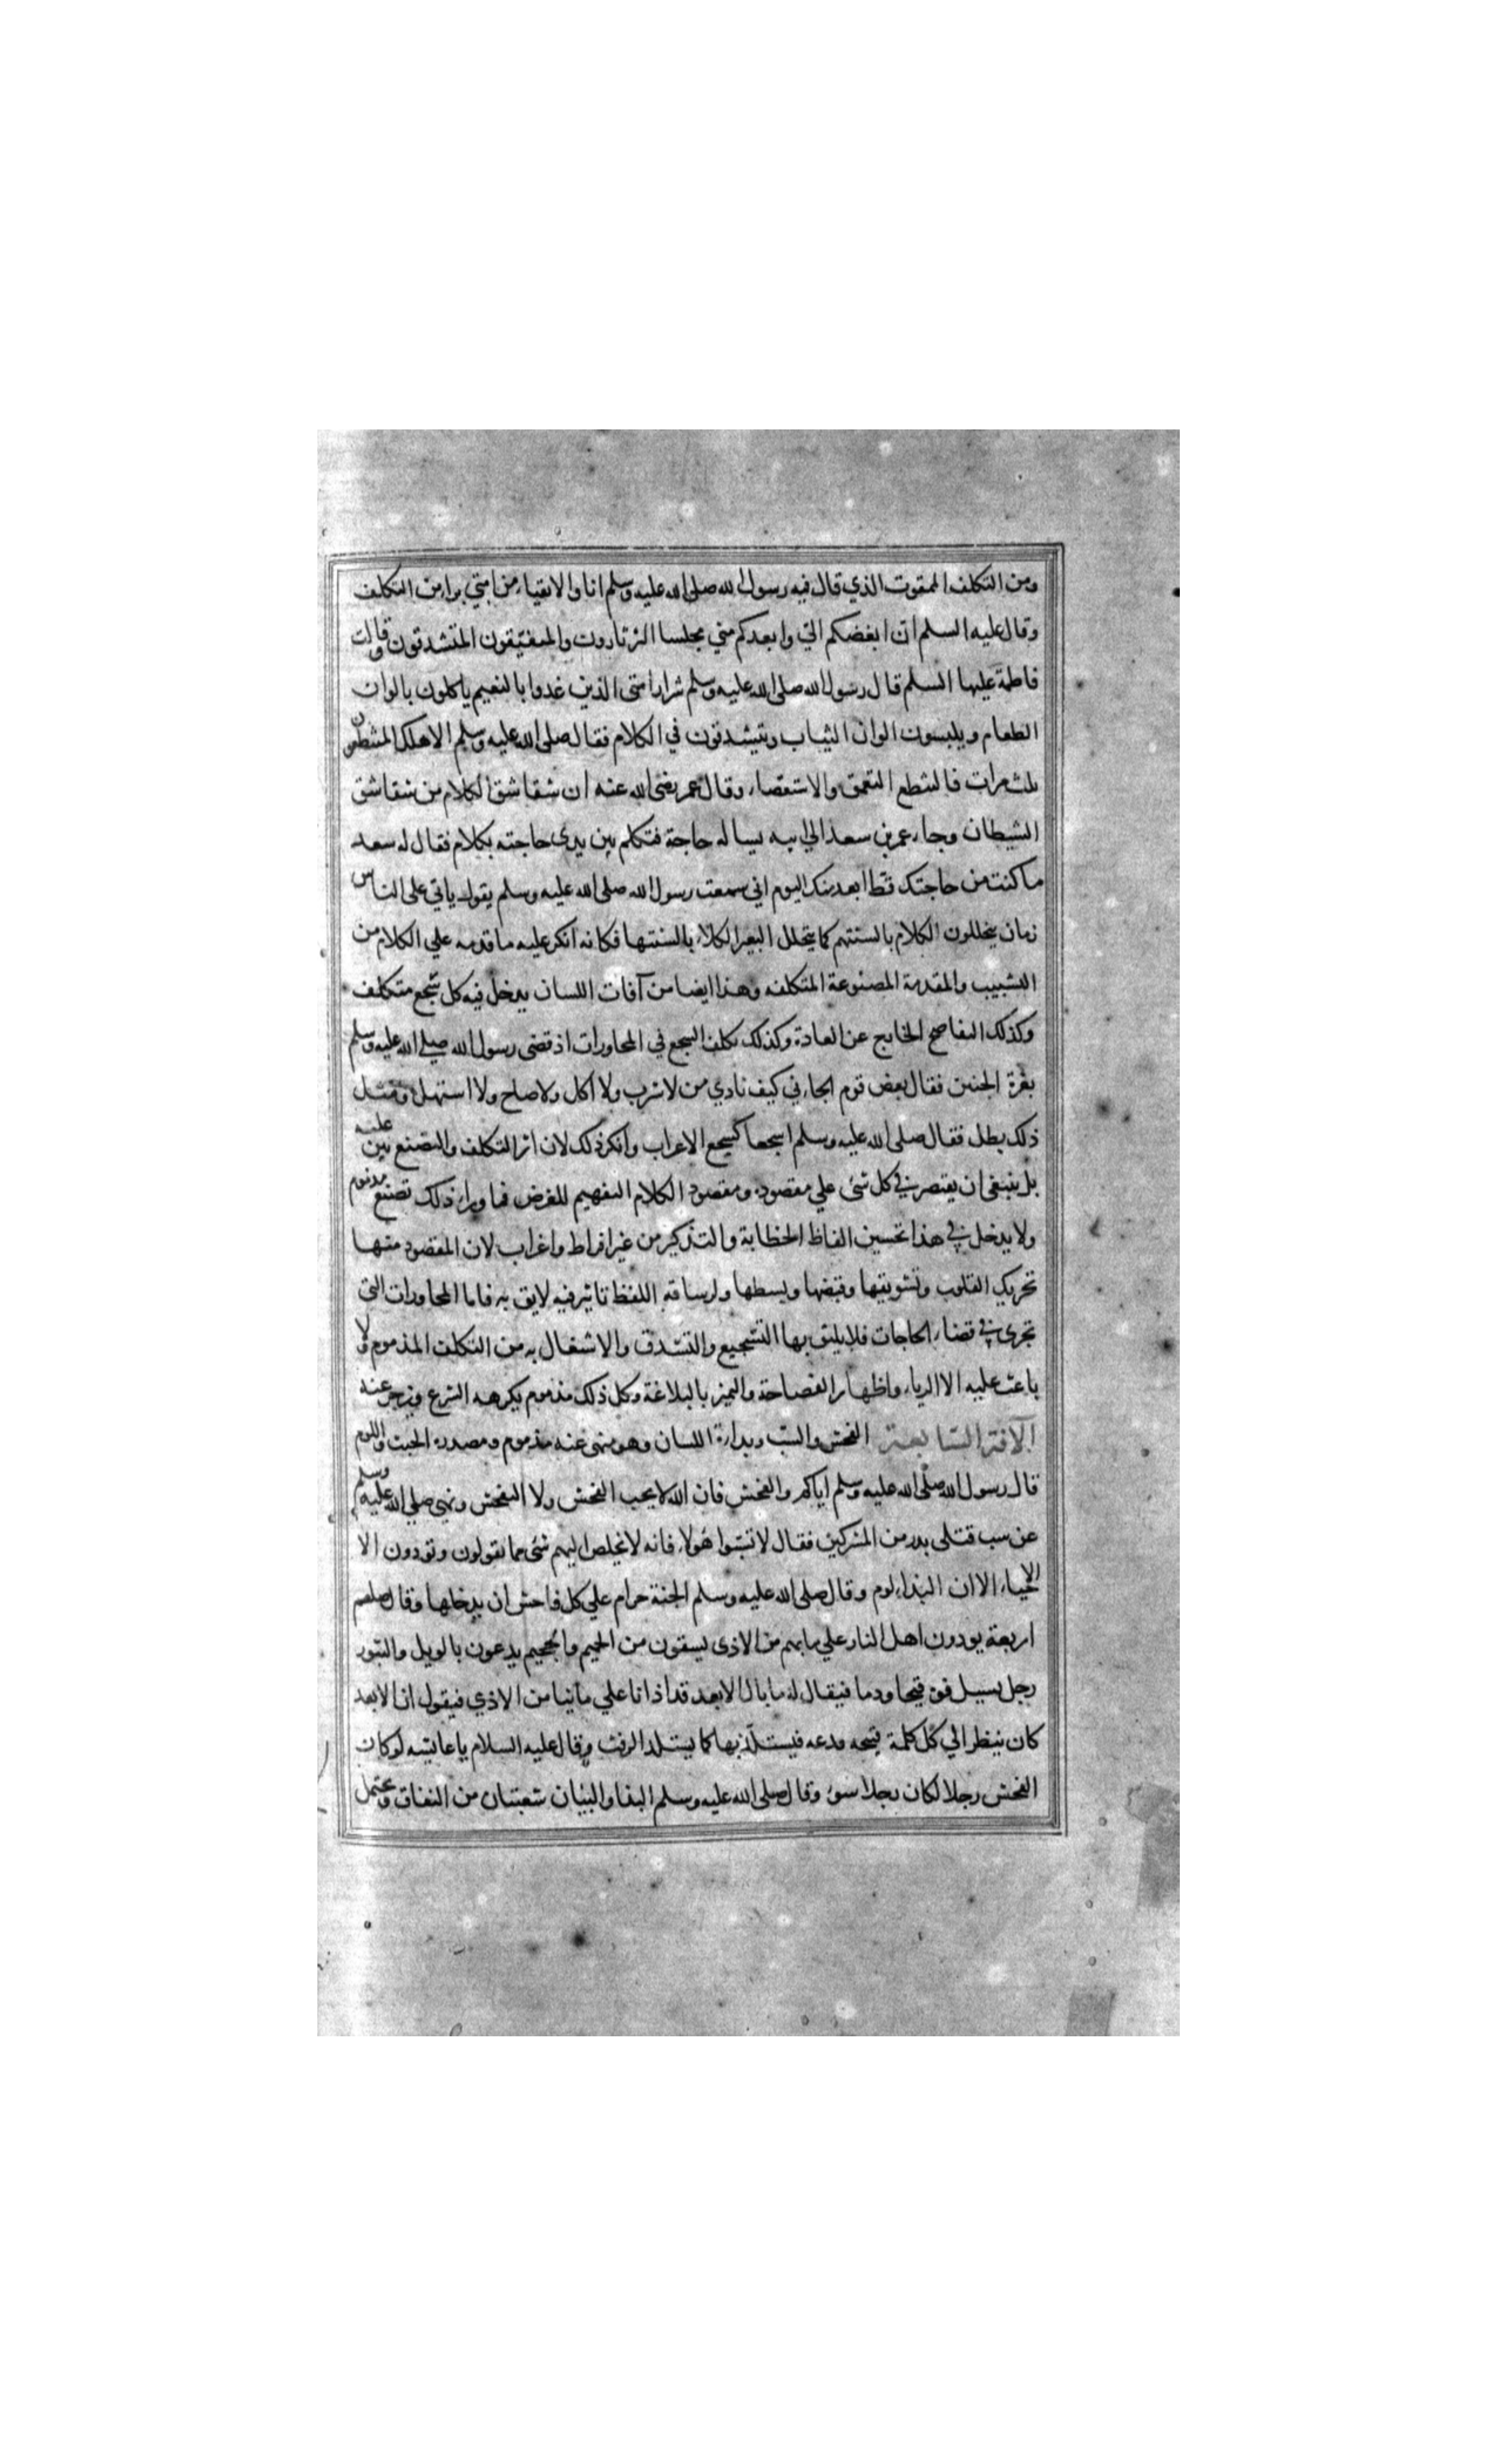 ومن التكلف الممقوت الذي قال فيه رسول الله صلى الله عليه وسلم انا والاتقياء من امتي براء من التكلف
وقال عليه السلم ان ابغضكم الي وابعدكم مني مجلسا الثرثارون والمتفيقون المتشدقون وقالت
فاطمة عليها السلم قال رسول الله صلى الله عليه وسلم شرار امتى الذين غدوا بالنعيم ياكلون بالوان
الطعام ويلبسون الوان الثياب ويتشدقون في الكلام فقال صلى الله عليه وسلم الا هلك المشطعون
ثلث مرات فالشطع التعمق والاستقصاء وقال عمر رضى الله عنه ان شقاشق الكلام من شقاشق
الشيطان وجاء عمر بن سعد الي ابيه يساله حاجة فتكلم بين يدى حاجته بكلام فقال له سعد
ما كنت من حاجتك قط ابعد منك اليوم اني سمعت رسول الله صلى الله عليه وسلم يقول ياتي على الناس
زمان يتخللون الكلام بالسنتهم كما يتخلل البقر الكلاء بالسنتها فكانه انكر عليه ما قدمه علي الكلام من
التشبيب والمقدمة المصنوعة المتكلفه وهذا ايضا من آفات اللسان يدخل فيه كل سجع متكلف
وكذلك التفاصح الخارج عن العادة وكذلك تكلف السجع في المحاورات اذ قضى رسول الله صلي الله عليه وسلم
بغرة الجنين فقال بعض قوم الجاني كيف نادي من لا شرب ولا اكل ولا صاح ولا استهل ومثل
ذلك بطل فقال صلى الله عليه وسلم اسجعا كسجع الاعراب وانكر ذلك لان اثر التكلف والتصنع بين عليه
بل ينبغى ان يقتصر في كل شئ علي مقصوده ومقصود الكلام التفهيم للغرض فما وراء ذلك تصنع مذموم
ولا يدخل في هذا تحسين الفاظ الخطابة والتذكير من غير افراط واغراب لان المقصود منها
تحريك القلوب وتشويقها وقبضها وبسطها ولرساقه اللفظ تاثير فيه لايق به فاما المحاورات التي
تجرى في قضاء الحاجات فلا يليق بها التسجيع والتشدق والاشتغال به من التكلف المذموم ولا
باعث عليه الا الرياء واظهار الفصاحة والتميز بالبلاغة وكل ذلك مذموم يكرهه الشرع ويزجر عنه
الآفة السابعة الفحش والسب وبذاءة اللسان وهو منهى عنه مذموم ومصدره الخبث واللوم
قال رسول الله صلى الله عليه وسلم اياكم والفحش فان الله لا يحب الفحش ولا التفحش ونهى صلي الله عليه وسلم
عن سب قتلى بدر من المشركين فقال لا تسبوا هولاء فانه لا يخلص اليهم شئ مما تقولون وتوذون الا
الاحياء الا ان البذاء لوم وقال صلى الله عليه وسلم الجنة حرام علي كل فاحش ان يدخلها وقال صلعم
اربعة يوذون اهل النار علي ما بهم من الاذى يسقون من الحميم والجحيم يدعون بالويل والثبور
رجل يسيل فوه قيحا ودما فيقال له ما بال الابعد قد اذانا علي ما بنا من الاذي فيقول ان الابعد
كان ينظر الي كل كلمة قبيحه فيستلذ بها كما يستلذ الرفث وقال عليه السلام يا عائشه لو كان
الفحش رجلا لكان رجلا سوء وقال صلى الله عليه وسلم البذا والبيان شعبتان من النفاق ويحتمل